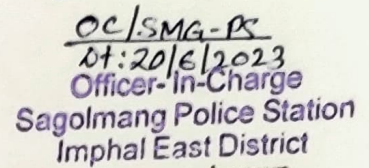 OC/SMG-PS
Dt:20/6/2023
Officer-In-Charge
Sagolmang Police Station
Imphal East District